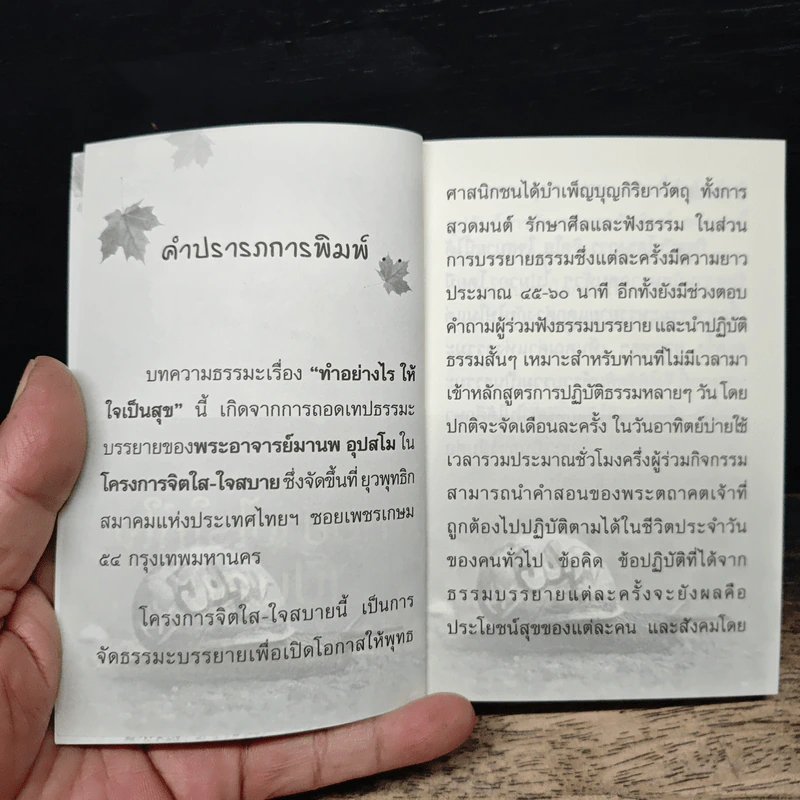 คำปรารภการพิมพ์
บทความธรรมะเรื่อง “ทำอย่างไร ให้
ใจเป็นสุข” นี้ เกิดจากการถอดเทปธรรมะ
บรรยายของพระอาจารย์มานพ อุปสโม ใน
โครงการจิตใส-ใจสบาย ซึ่งจัดขึ้นที่ ยุวพุทธิก
สมาคมแห่งประเทศไทยฯ ซอยเพชรเกษม
๕๔ กรุงเทพมหานคร
โครงการจิตใส-ใจสบายนี้ เป็นการ
จัดธรรมะบรรยายเพื่อเปิดโอกาสให้พุทธ
ศาสนิกชนได้บำเพ็ญบุญกิริยาวัตถุ ทั้งการ
สวดมนต์ รักษาศีลและฟังธรรม ในส่วน
การบรรยายธรรมซึ่งแต่ละครั้งมีความยาว
ประมาณ ๔๕-๖๐ นาที อีกทั้งยังมีช่วงตอบ
คำถามผู้ร่วมฟังธรรมบรรยาย และนำปฏิบัติ
ธรรมสั้นๆ เหมาะสำหรับท่านที่ไม่มีเวลามา
เข้าหลักสูตรการปฏิบัติธรรมหลายๆ วัน โดย
ปกติจะจัดเดือนละครั้ง ในวันอาทิตย์บ่ายใช้
เวลารวมประมาณชั่วโมงครึ่งผู้ร่วมกิจกรรม
สามารถนำคำสอนของพระตถาคตเจ้าที่
ถูกต้องไปปฏิบัติตามได้ในชีวิตประจำวัน
ของคนทั่วไป ข้อคิด ข้อปฏิบัติที่ได้จาก
ธรรมบรรยายแต่ละครั้งจะยังผลคือ
ประโยชน์สุขของแต่ละคน และสังคมโดย